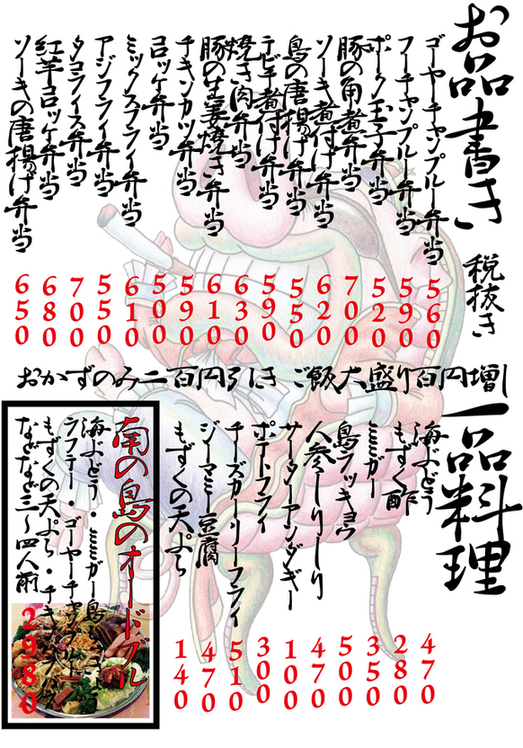 お品書き 税抜き
ゴーヤーチャンプルー弁当 560
フーチャンプルー弁当 590
ポーク玉子弁当 520
豚の角煮弁当 700
ソーキ煮付け弁当 620
鳥の唐揚げ弁当 550
テビチ煮付け弁当 590
焼き肉弁当 630
豚の生姜焼き弁当 610
チキンカツ弁当 590
コロッケ弁当 500
ミックスフライ弁当 610
アジフライ弁当 550
タコライス弁当 700
紅芋コロッケ弁当 680
ソーキの唐揚げ弁当 650
おかずのみ二百円引き ご飯大盛り百円増し
一品料理
海ぶどう 470
もずく酢 280
ミミガー 350
島ラッキョウ 500
人参しりしり 470
サーターアンダギー 100
ポテトフライ 300
チーズカリーフライ 510
ジーマミー豆腐 470
もずくの天ぷら 140
南の島のオードブル
海ぶどう・ミミガー島
ラフテー・ゴーヤーチャンプルー
もずくの天ぷら・チキ
などなど三〜四人前
2980